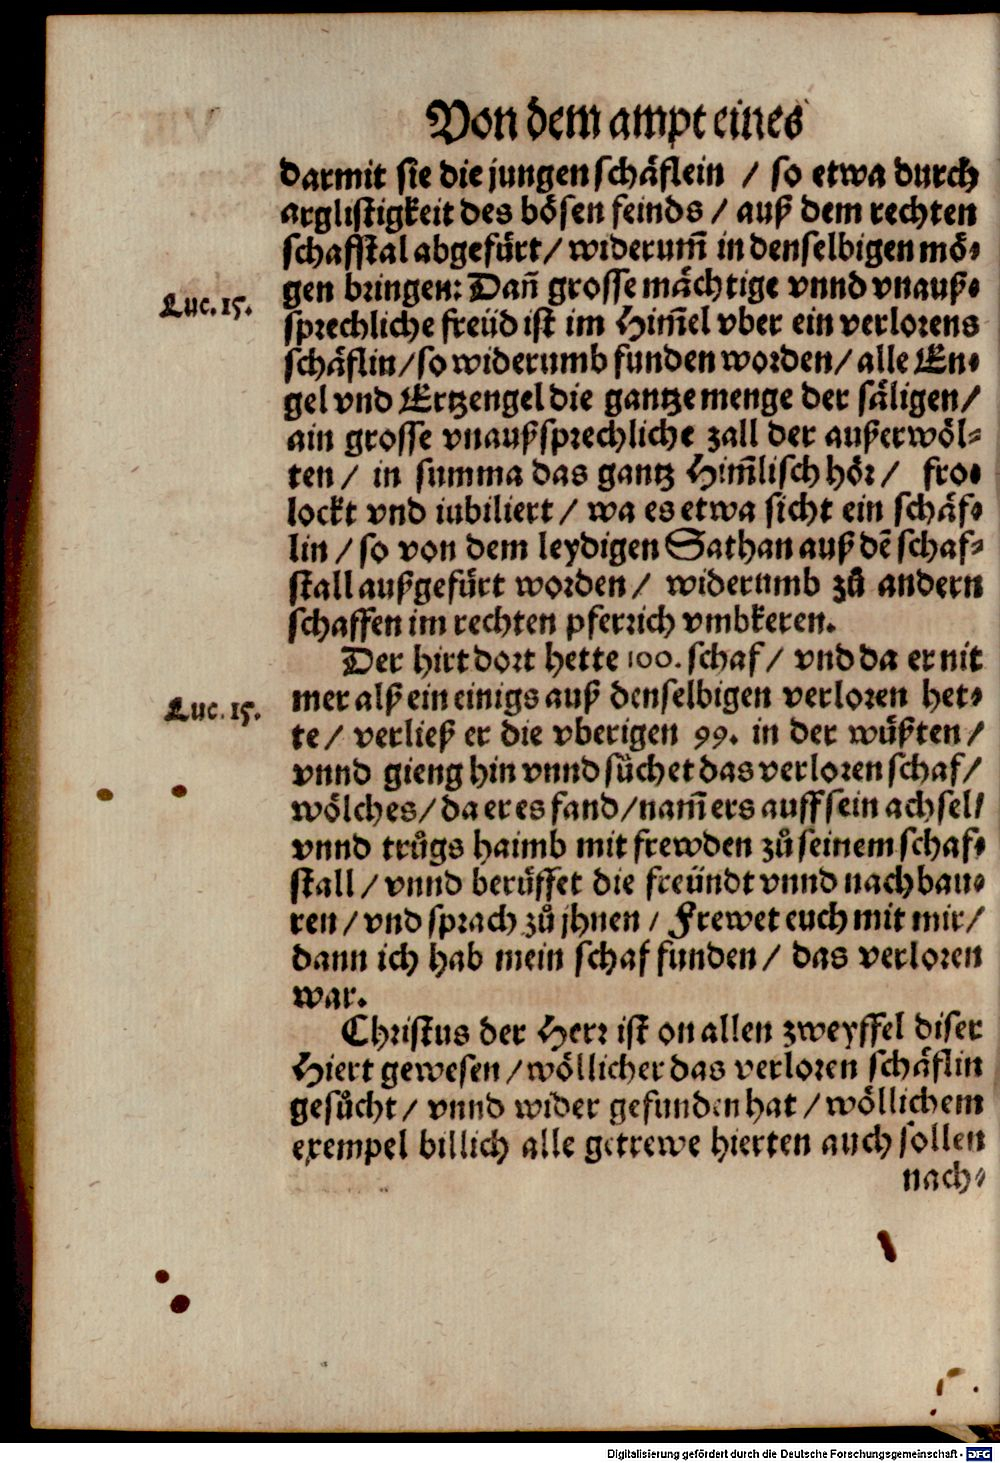 Von dem ampt eines
darmit sie die jungen schäflein / so etwa durch
arglistigkeit des bösen feinds / auß dem rechten
schafstal abgefürt / widerum̃ in denselbigen mö-
gen bringen: Dañ grosse mächtige vnnd vnauß-
Luc. 15.
sprechliche freüd ist im Him̃el vber ein verlorens
schäflin / so widerumb funden worden / alle En-
gel vnd Ertzengel die gantze menge der säligen /
ain grosse vnaußsprechliche zall der außerwöl-
ten / in summa das gantz Him̃lisch hör / fro-
lockt vnd iubiliert / wa es etwa sicht ein schäf-
lin / so von dem leydigen Sathan auß dẽ schaf-
stall außgefürt worden / widerumb zů andern
schaffen im rechten pferrich vmbkeren.
Der hirt dort hette 100. schaf / vnd da er nit
mer alß ein einigs auß denselbigen verloren het-
Luc. 15.
te / verließ er die vberigen 99. in der wüßten /
vnnd gieng hin vnnd süchet das verloren schaf /
wölches / da er es fand / nam̃ ers auff sein achsel /
vnnd trůgs haimb mit frewden zů seinem schaf-
stall / vnnd berüffet die freündt vnnd nachbau-
ren / vnd sprach zů jhnen / Frewet euch mit mir /
dann ich hab mein schaf funden / das verloren
war.
Christus der Herr ist on allen zweyffel diser
Hiert gewesen / wöllicher das verloren schäflin
gesůcht / vnnd wider gefunden hat / wöllichem
exempel billich alle getrewe hierten auch sollen
nach-
Digitalisierung gefördert durch die Deutsche Forschungsgemeinschaft - DFG